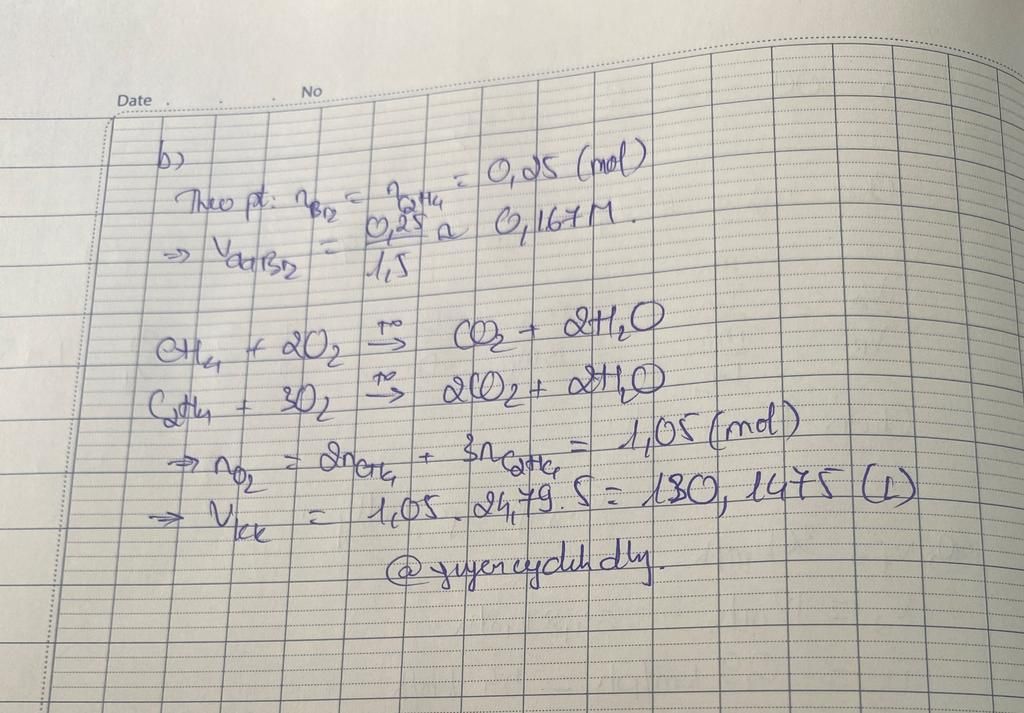 Date No
b)
Theo pt: nBr2 = nC2H4 = 0,25 (mol)
⇒ VddBr2 = 0,25/1,5 ≈ 0,167M.
CH4 + 2O2 →(t°) CO2 + 2H2O
C2H4 + 3O2 →(t°) 2CO2 + 2H2O
→ nO2 = 2nCH4 + 3nC2H4 = 1,05 (mol)
→ Vkk = 1,05 . 24,79 . 5 = 130,1475 (L)